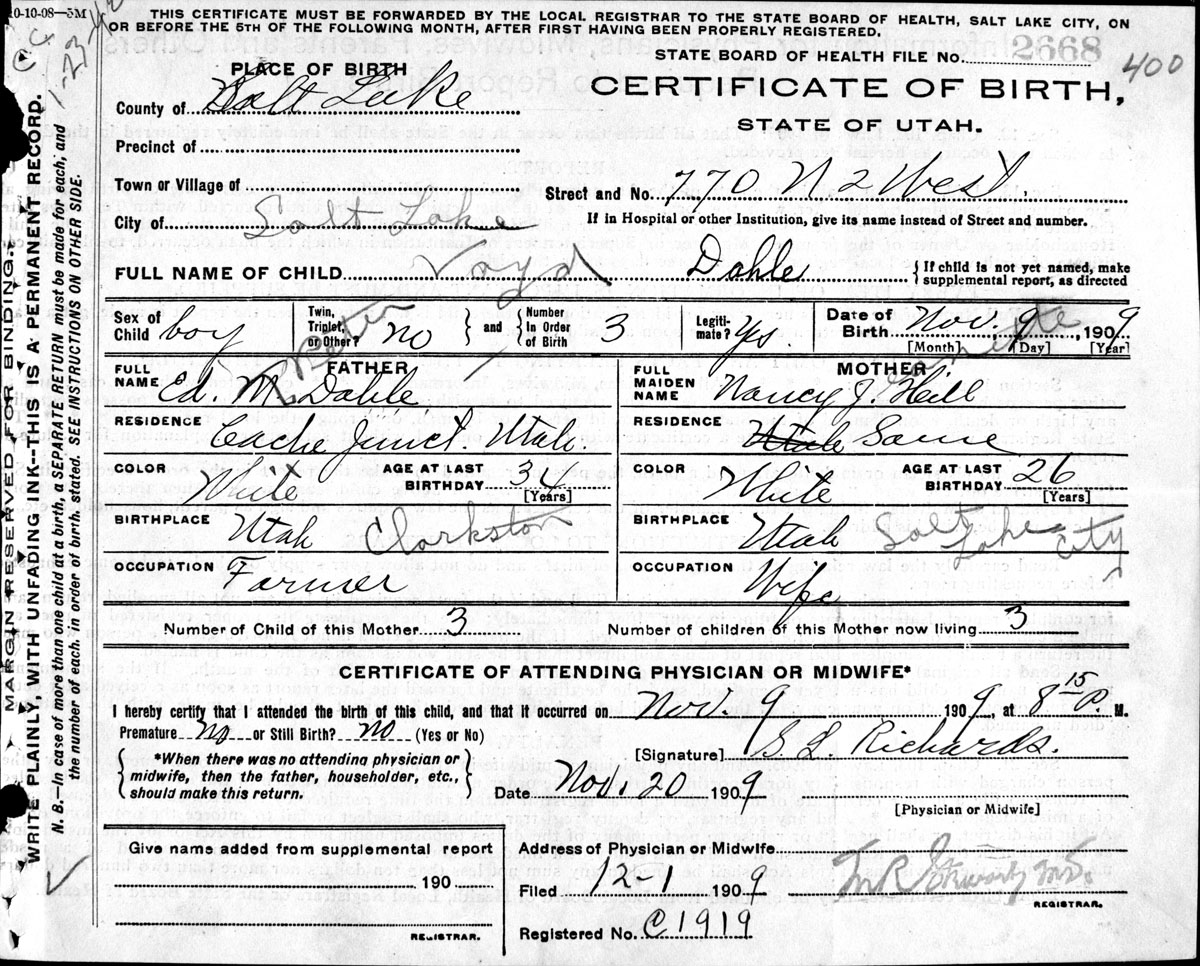 10-10-08—5M
THIS CERTIFICATE MUST BE FORWARDED BY THE LOCAL REGISTRAR TO THE STATE BOARD OF HEALTH, SALT LAKE CITY, ON
OR BEFORE THE 5TH OF THE FOLLOWING MONTH, AFTER FIRST HAVING BEEN PROPERLY REGISTERED.
STATE BOARD OF HEALTH FILE No. 2668
400
PLACE OF BIRTH
CERTIFICATE OF BIRTH,
STATE OF UTAH.
County of Salt Lake
Precinct of
Town or Village of
Street and No. 770 N 2 West
City of Salt Lake
If in Hospital or other Institution, give its name instead of Street and number.
FULL NAME OF CHILD Voyd Dahle { If child is not yet named, make supplemental report, as directed
Sex of Child boy
Twin, Triplet, or Other? no
and Number In Order of Birth 3
Legitimate? Yes
Date of Birth Nov. 9, 1909
[Month] [Day] [Year]
FATHER
MOTHER
FULL NAME Ed. M. Dahle
FULL MAIDEN NAME Nancy J. Hill
RESIDENCE Cache Junct. Utah.
RESIDENCE Utah Same
COLOR White AGE AT LAST BIRTHDAY 34 [Years]
COLOR White AGE AT LAST BIRTHDAY 26 [Years]
BIRTHPLACE Utah Clarkston
BIRTHPLACE Utah Salt Lake City
OCCUPATION Farmer
OCCUPATION Wife
Number of Child of this Mother 3
Number of children of this Mother now living 3
CERTIFICATE OF ATTENDING PHYSICIAN OR MIDWIFE*
I hereby certify that I attended the birth of this child, and that it occurred on Nov. 9 1909, at 8 15 P. M.
Premature no or Still Birth? no (Yes or No)
[Signature] S. L Richards.
{ *When there was no attending physician or midwife, then the father, householder, etc., should make this return. }
Date Nov. 20 1909
[Physician or Midwife]
Give name added from supplemental report
190
REGISTRAR.
Address of Physician or Midwife
Filed 12-1 1909
REGISTRAR.
Registered No. C1919
MARGIN RESERVED FOR BINDING.
WRITE PLAINLY, WITH UNFADING INK--THIS IS A PERMANENT RECORD.
N. B.—In case of more than one child at a birth, a SEPARATE RETURN must be made for each, and
the number of each, in order of birth, stated. SEE INSTRUCTIONS ON OTHER SIDE.